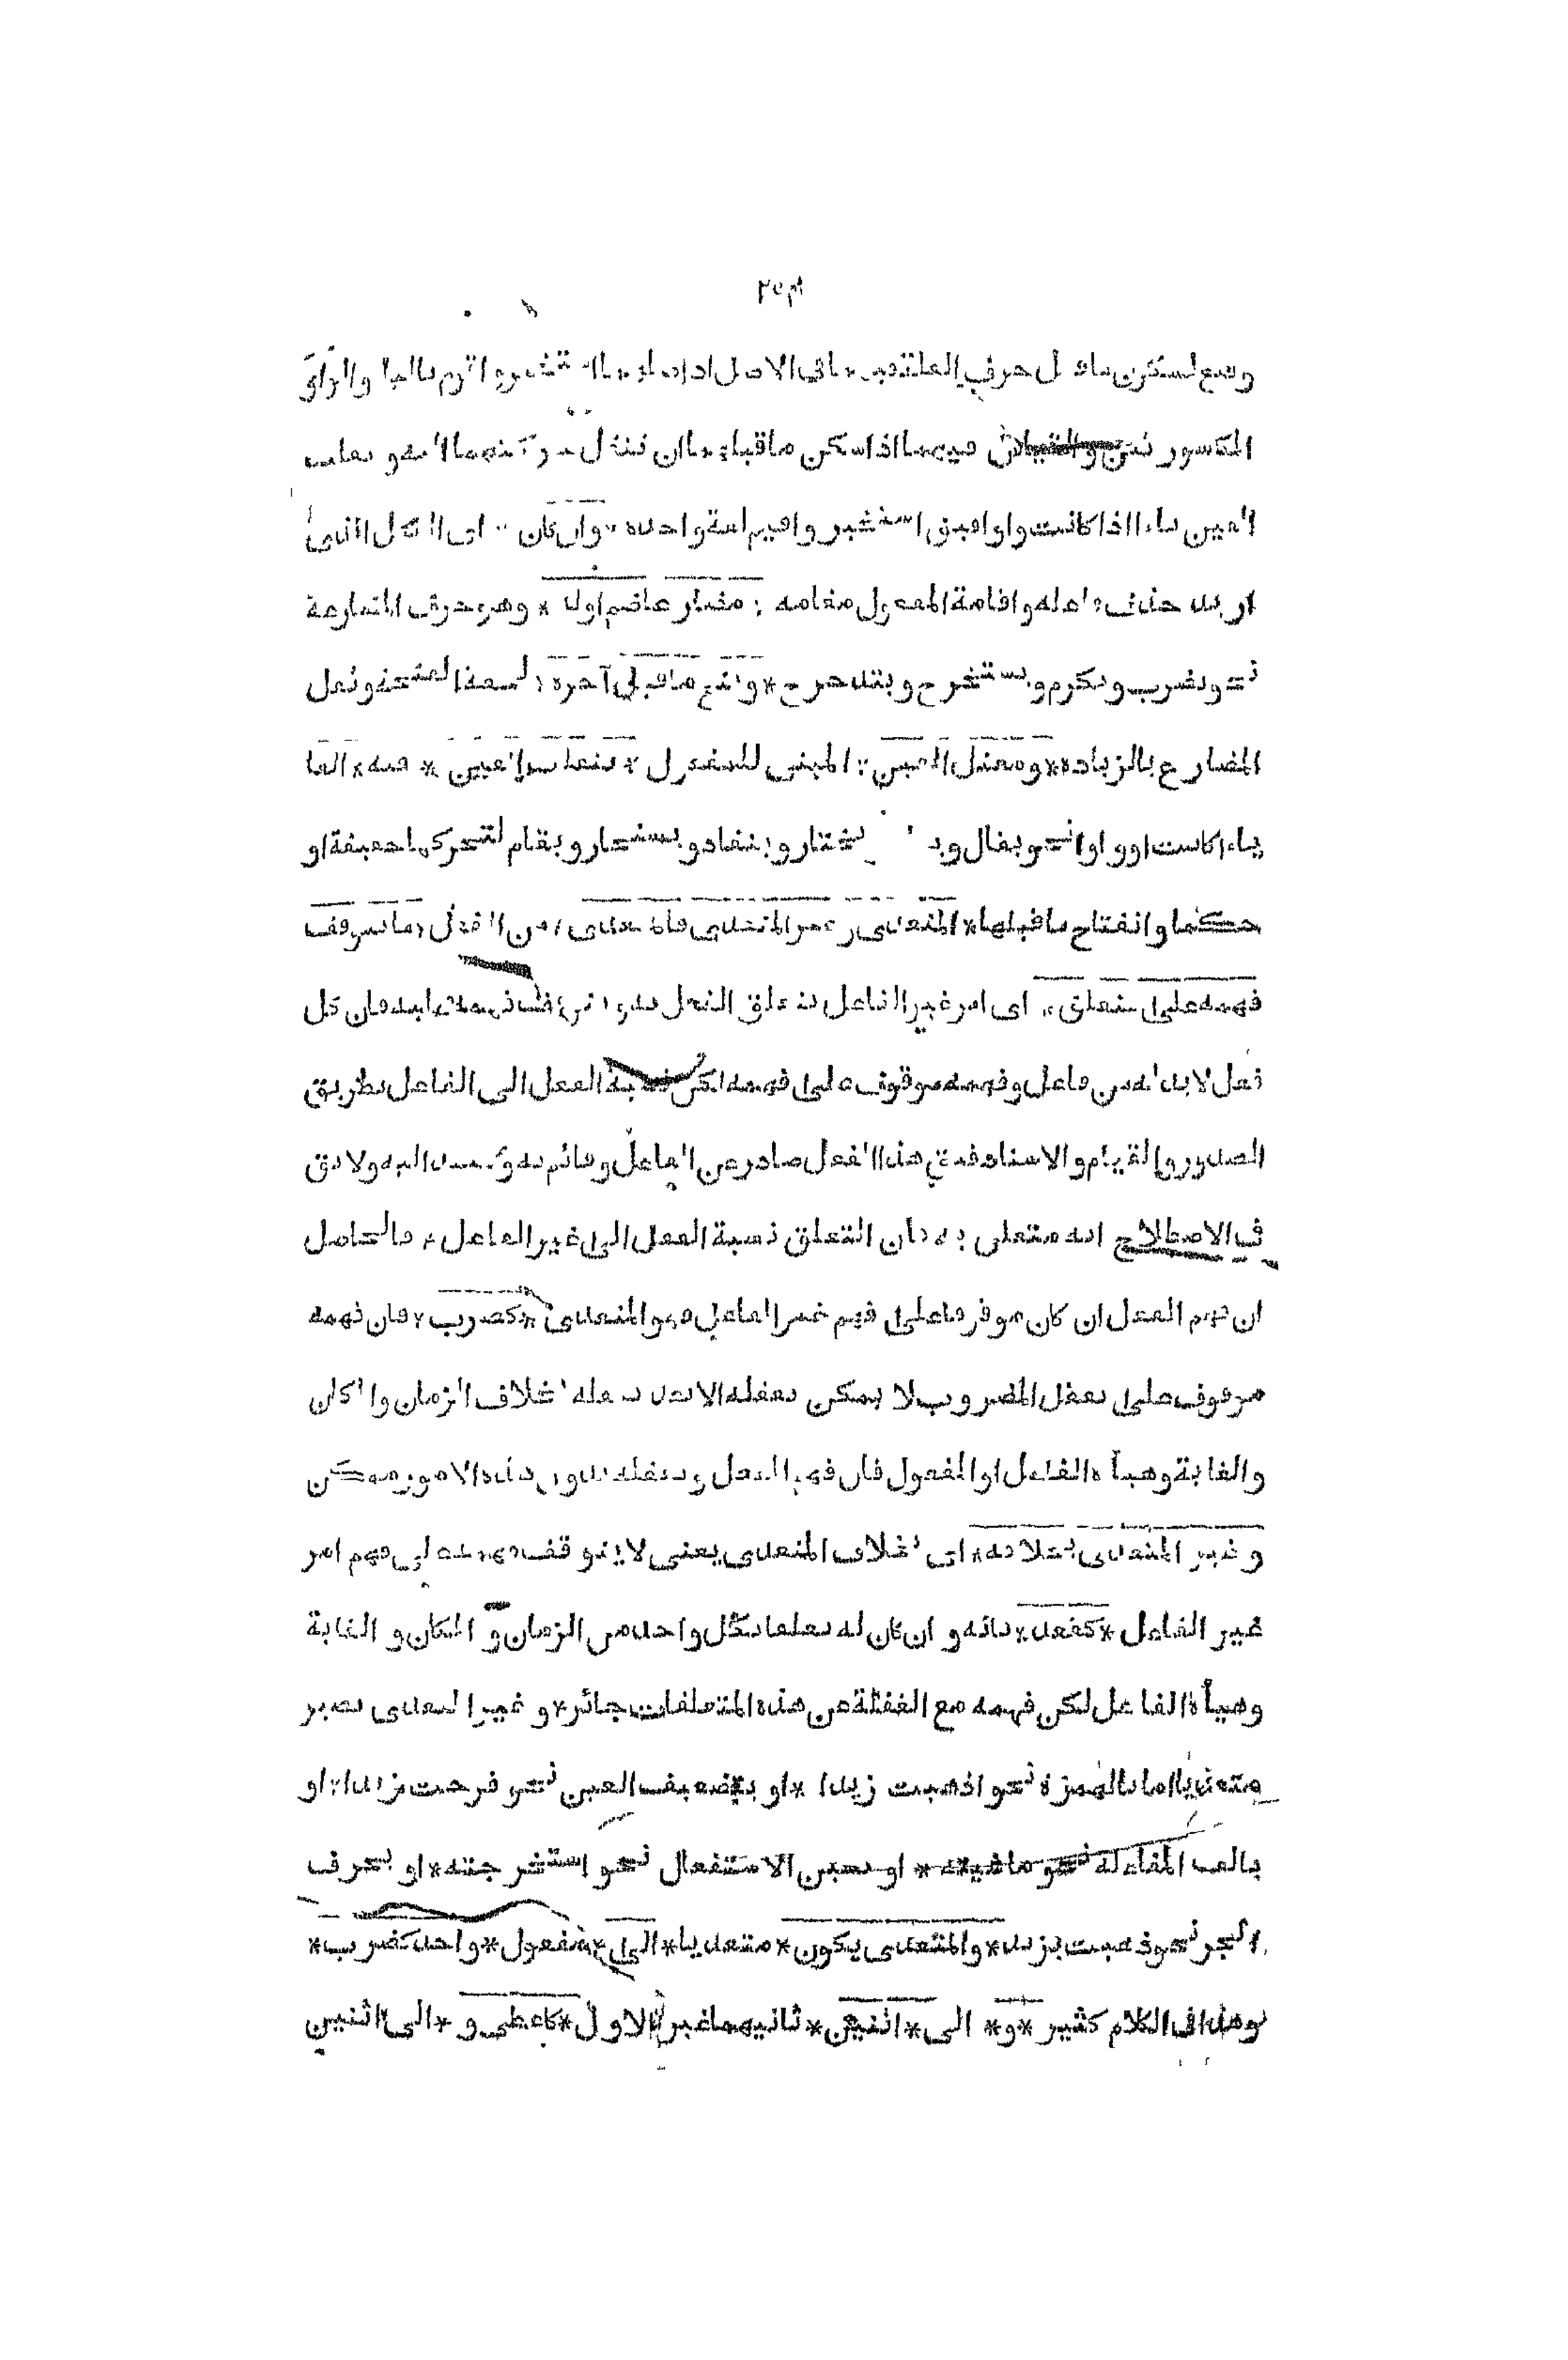 حرف العلة
المكسورتين اذا سكن ما قبلهما ان
العين ياء اذا كانت واوا فيق استخير واقيم لغة واحدة * وان كان * اى الفعل الذى
اريد حذف فاعله واقامة المفعول مقامه * مضارعا ضم اوله * وهو حرف المضارعة
نحو يضرب ويكرم ويستخرج ويتدحرج * وفتح ما قبل آخره * لخفة الفتحة وثقل
المضارع بالزيادة * ومعتل العين * المبنى للمفعول * تنقلب العين * فيه * الفا
ياء كانت او واوا نحو يقال ويختار وينقاد ويستخار ويقام لتحركها حقيقة او
حكما وانفتاح ما قبلها * المتعدى وغير المتعدى فالمتعدى * من الفعل * ما يتوقف
فهمه على متعلق * اى امر غير الفاعل يتعلق الفعل به فان كل
فعل لابد له من فاعل وفهمه موقوف على فهمه لكن نسبة الفعل الى الفاعل بطريق
الصدور والقيام والاسناد فيق هذا الفعل صادر عن الفاعل وقائم به ومسند اليه ولا يق
فى الاصطلاح انه متعلق به فان التعلق نسبة الفعل الى غير الفاعل * فالحاصل
ان فهم الفعل ان كان موقوفا على فهم غير الفاعل فهو المتعدى * كضرب * فان فهمه
موقوف على تعقل المضروب لا يمكن تعقله الا بعد تعقله بخلاف الزمان والمكان
والغاية وهيأة الفاعل او المفعول فان فهم الفعل وتعقله بدون هذه الامور ممكن
وغير المتعدى بخلافه * اى بخلاف المتعدى يعنى لا يتوقف فهمه على فهم امر
غير الفاعل * كقعد * فانه وان كان له تعلقا بكل واحد من الزمان والمكان والغاية
وهيأة الفاعل لكن فهمه مع الغفلة عن هذه المتعلقات جائز * وغير المتعدى يصير
متعديا اما بالهمزة نحو اذهبت زيدا * او بتضعيف العين نحو فرحت زيدا * او
بالف المفاعلة نحو ماشيته * او بسين الاستفعال نحو استخرجته * او بحرف
الجر نحو ذهبت بزيد * والمتعدى يكون * متعديا * الى * مفعول * واحد كضرب *
وهذا فى الكلام كثير * و * الى * اثنين * ثانيهما غير الاول * كاعطى و * الى * اثنين